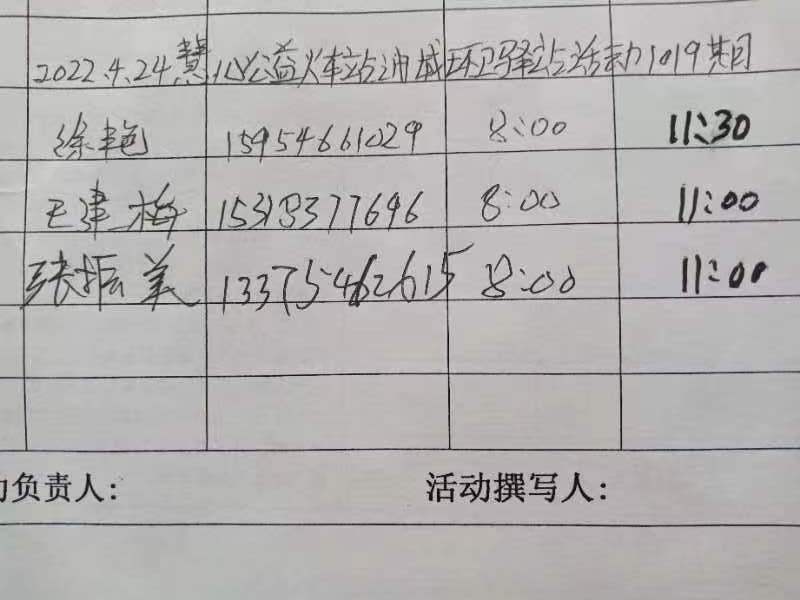 2022.4.24慧心公益火车站油城环卫驿站活动1019期
徐艳 15954661029 8:00 11:30
王津梅 15318377696 8:00 11:00
张振美 13375462615 8:00 11:00
动负责人: 活动撰写人: